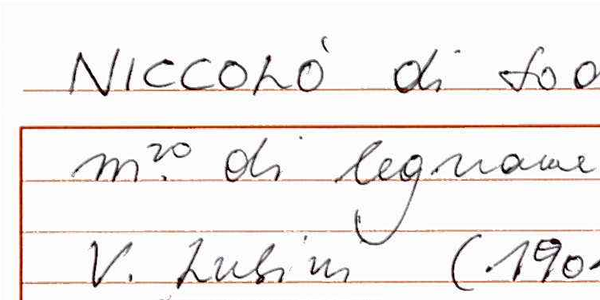 NICCOLÒ di
m.ro di legname
V. Lusini (190